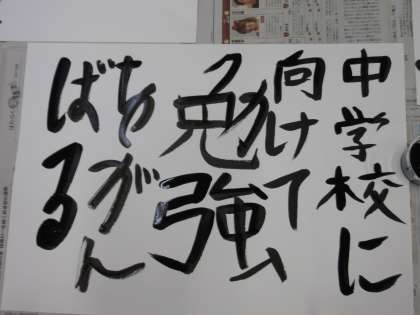 中学校に
向けて
勉強
をがん
ばる